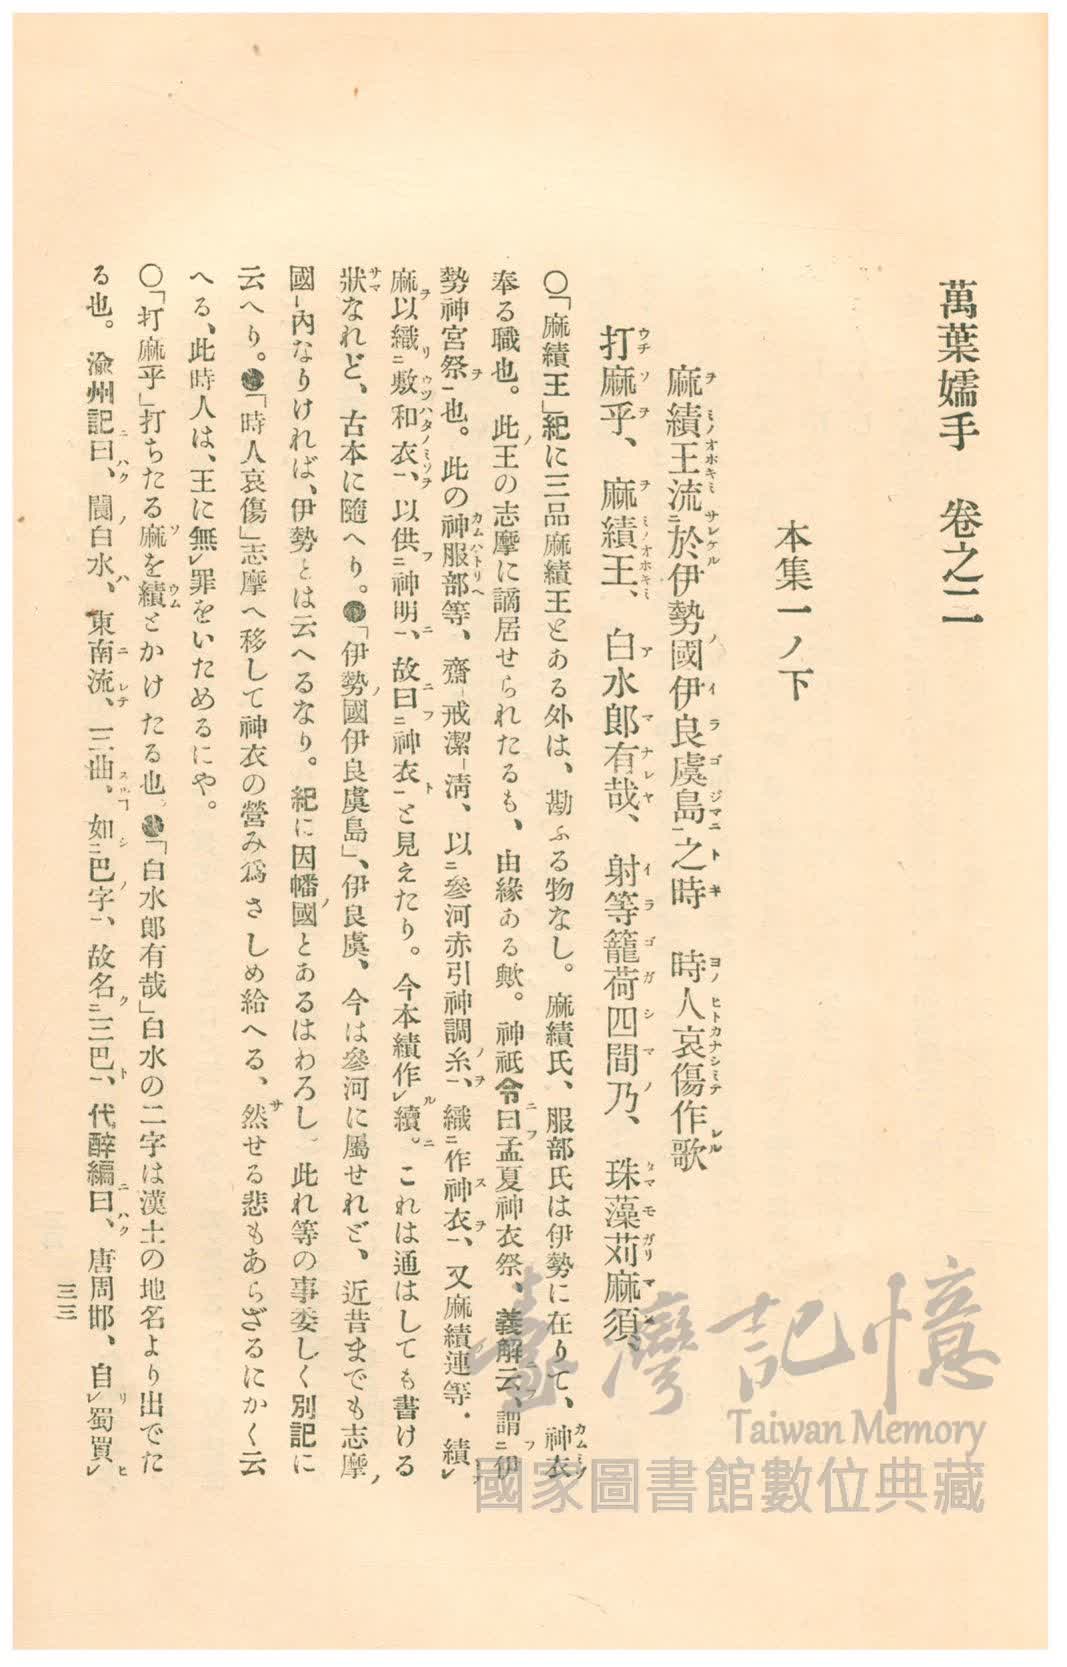 萬葉嬬手　卷之二
本集一ノ下
麻績王流於伊勢國伊良虞島之時　時人哀傷作歌
打麻乎、麻績王、白水郎有哉、射等籠荷四間乃、珠藻苅麻須、
〇「麻績王」紀に三品麻績王とある外は、勘ふる物なし。麻績氏、服部氏は伊勢に在りて、神衣
奉る職也。此王の志摩に謫居せられたるも、由緣ある歟。神祇令曰孟夏神衣祭、義解云、謂伊
勢神宮祭也。此の神服部等、齋戒潔清、以參河赤引神調糸、織作神衣、又麻績連等・績
麻以織敷和衣、以供神明、故曰神衣と見えたり。今本績作續。これは通はしても書ける
狀なれど、古本に隨へり。●「伊勢國伊良虞島」、伊良虞、今は參河に屬せれど、近昔までも志摩
國內なりければ、伊勢とは云へるなり。紀に因幡國とあるはわろし。此れ等の事委しく別記に
云へり。●「時人哀傷」志摩へ移して神衣の營み爲さしめ給へる、然せる悲もあらざるにかく云
へる、此時人は、王に無罪をいためるにや。
〇「打麻乎」打ちたる麻を績とかけたる也。●「白水郎有哉」白水の二字は漢土の地名より出でた
る也。渝州記曰、閬白水、東南流、三曲、如巴字、故名三巴、代醉編曰、唐周邯、自蜀買
三三
臺灣記憶
Taiwan Memory
國家圖書館數位典藏